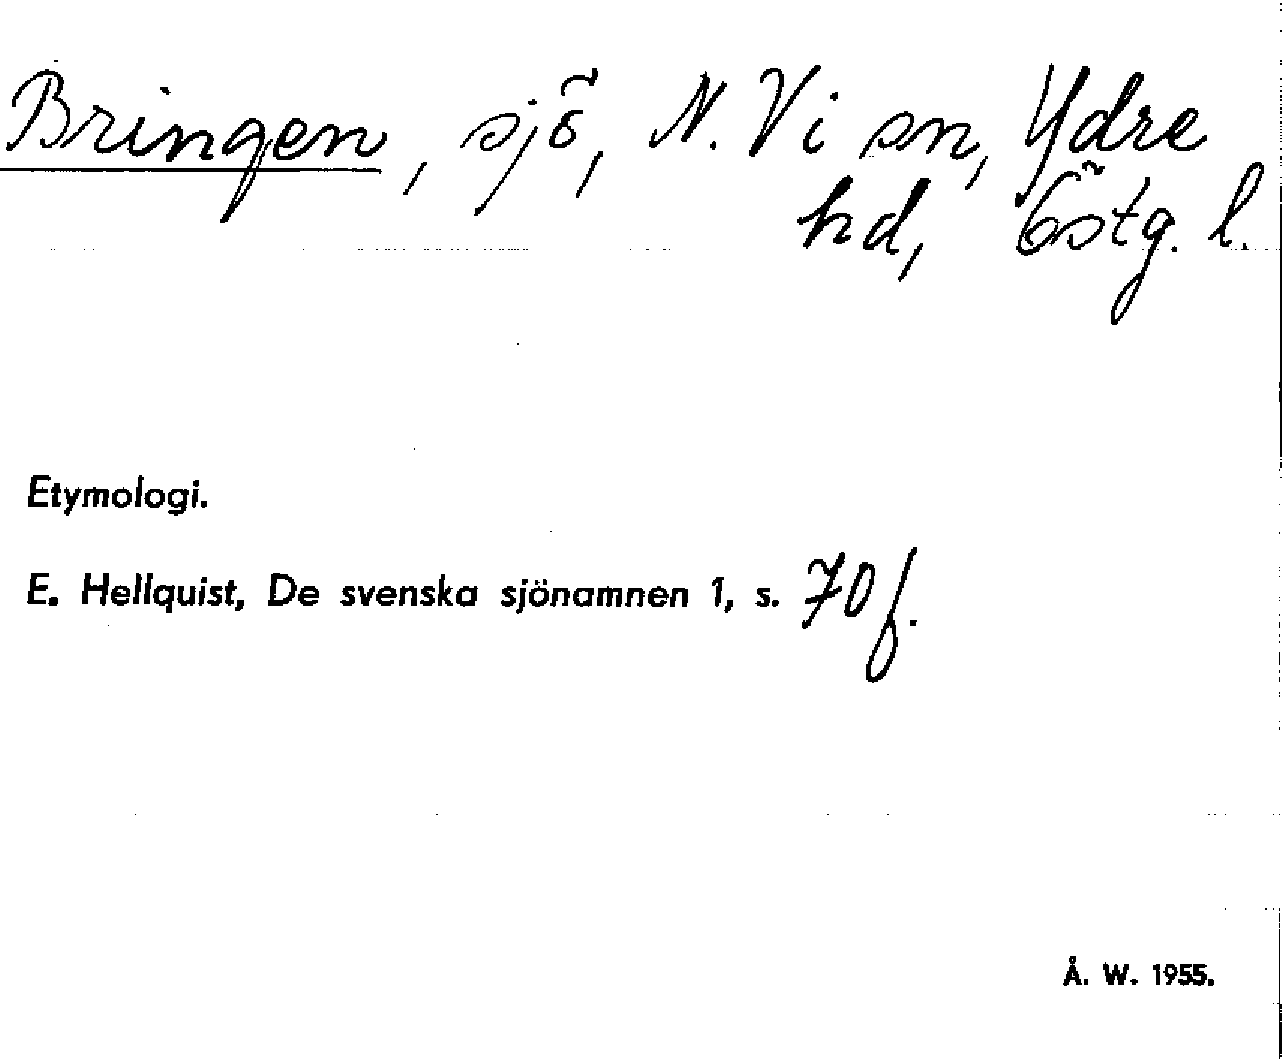 Bringen, sjö, N. Vi sn, Ydre
hd, Östg. l.
Etymologi.
E. Hellquist, De svenska sjönamnen 1, s. 70 f.
Å. W. 1955.